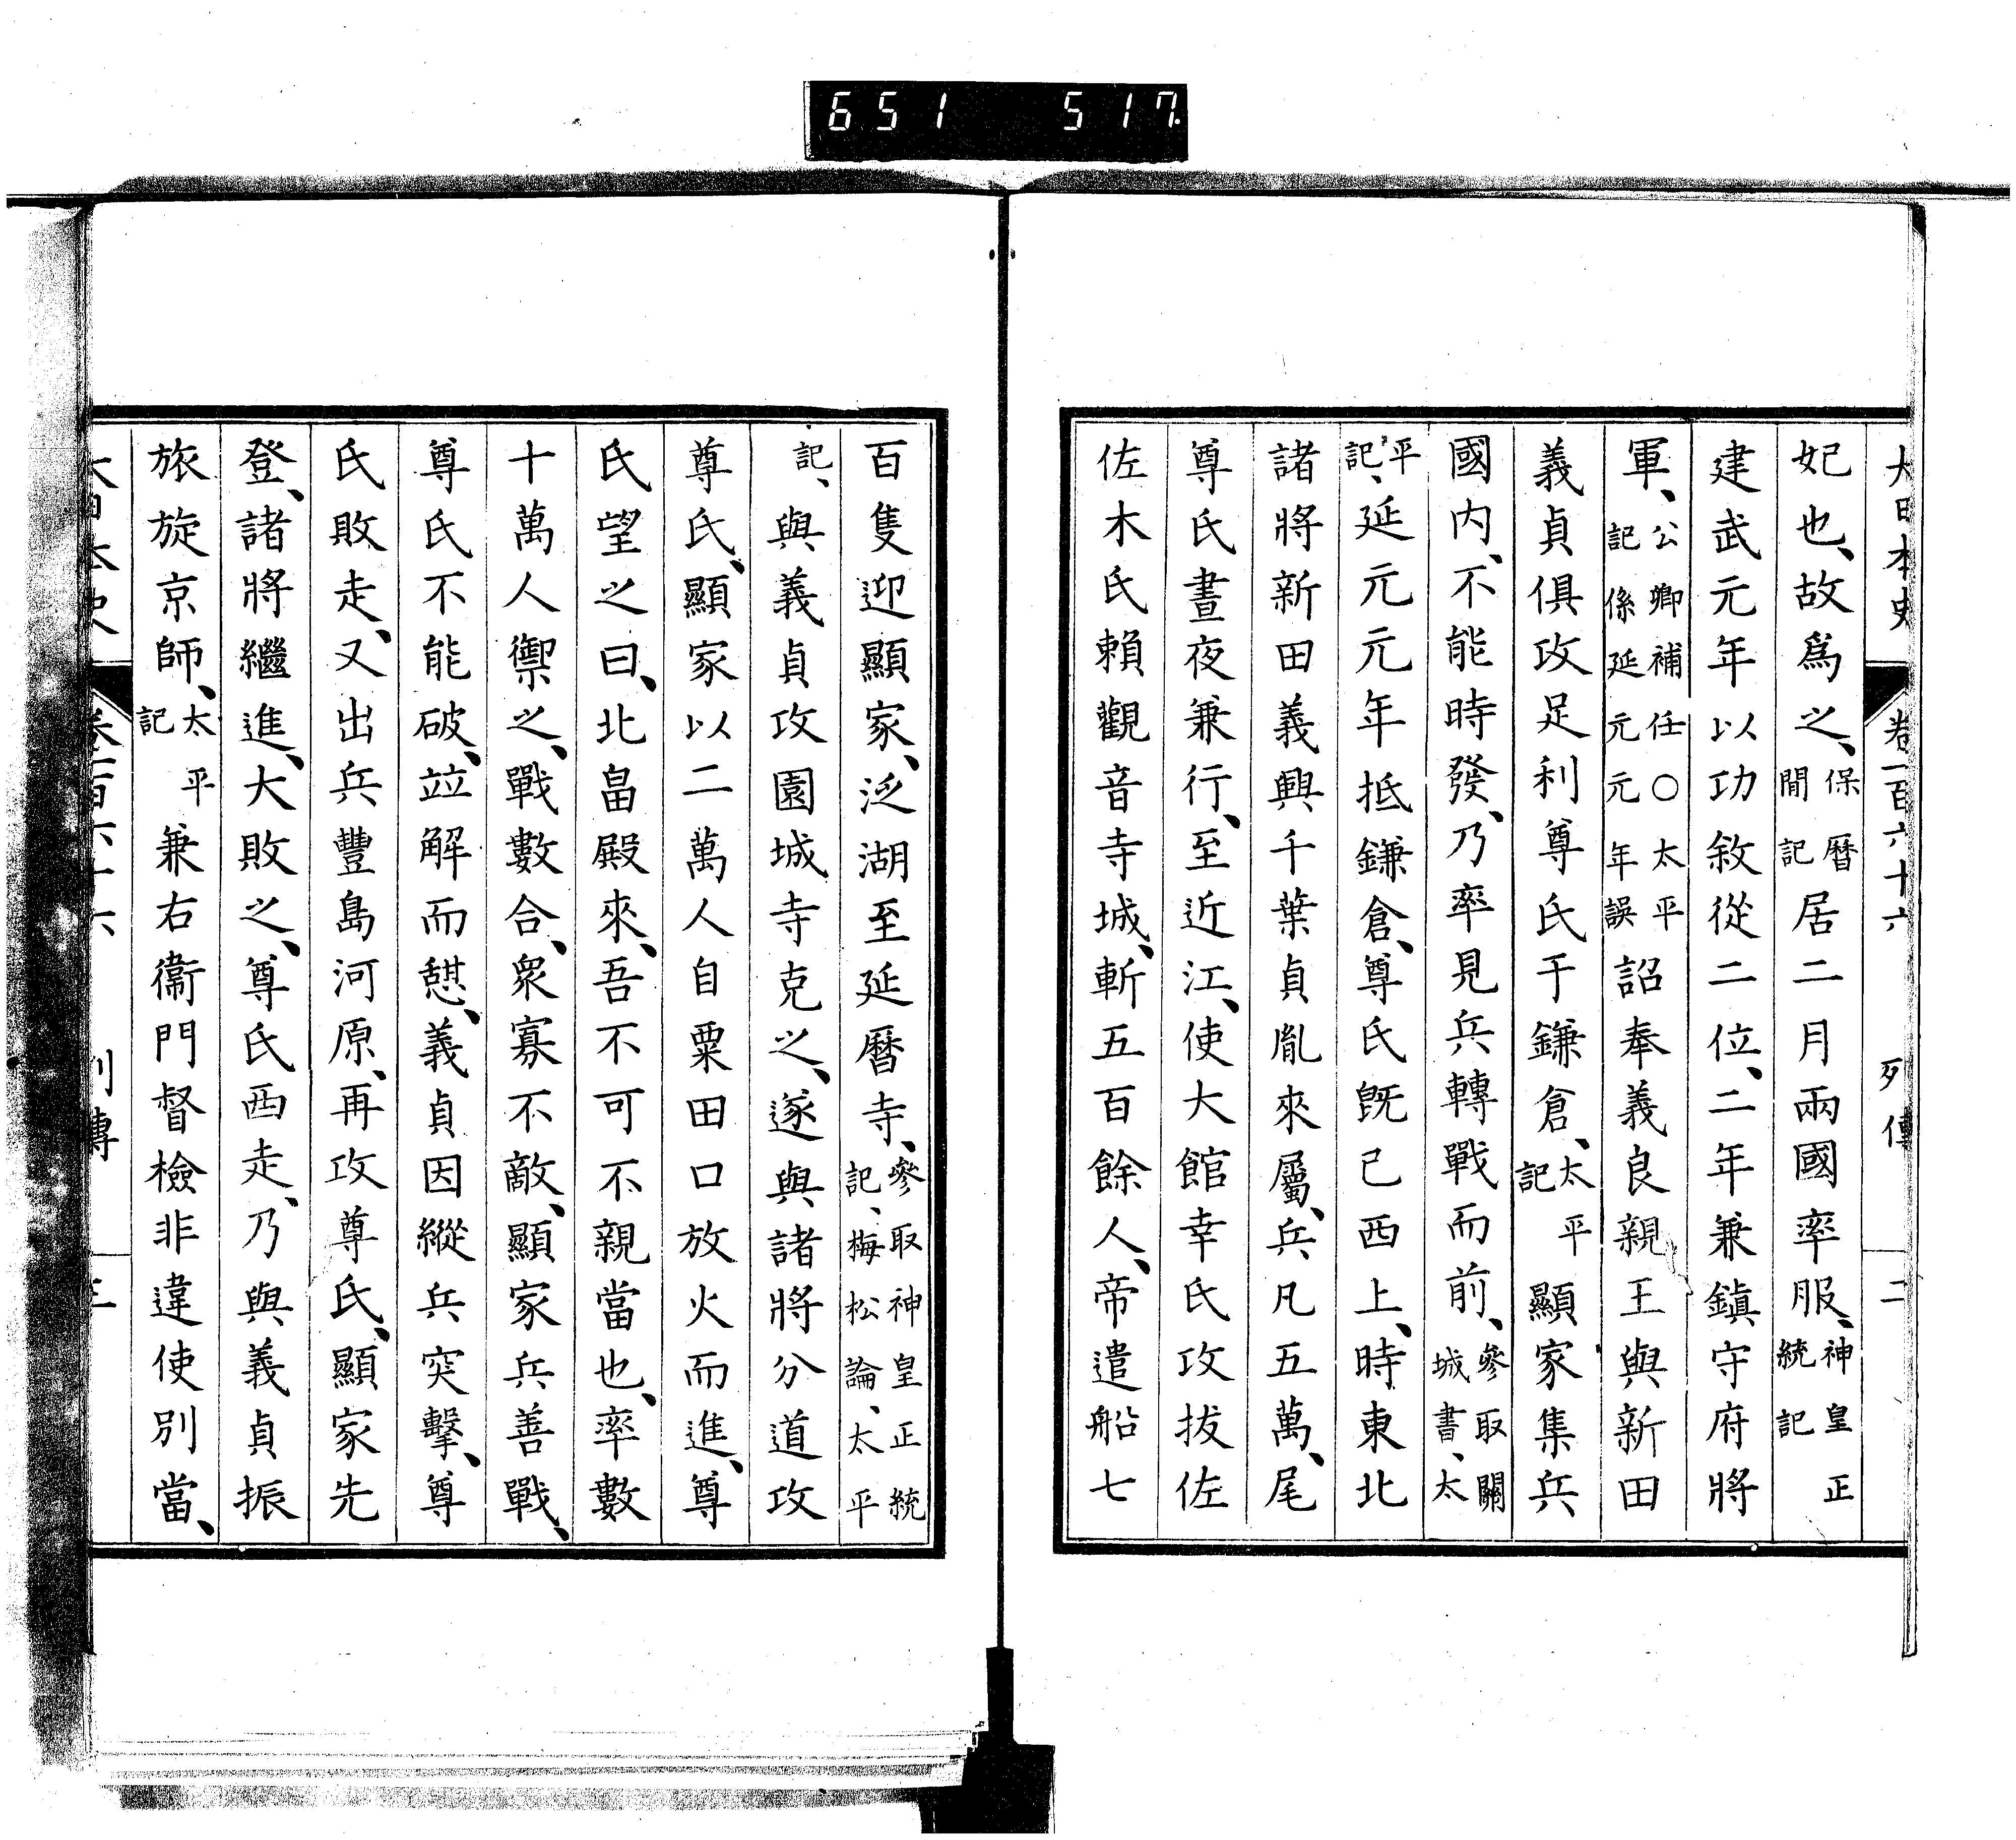 651 517
大日本史 卷一百六十六 列傳 二
妃也、故爲之、保曆閒記居二月兩國率服、神皇正統記
建武元年以功敘從二位、二年兼鎭守府將
軍、公卿補任○太平記係延元元年誤詔奉義良親王與新田
義貞俱攻足利尊氏于鎌倉、太平記顯家集兵
國內、不能時發、乃率見兵轉戰而前、參取關城書、太
平記、延元元年抵鎌倉、尊氏旣已西上、時東北
諸將新田義興千葉貞胤來屬、兵凡五萬、尾
尊氏晝夜兼行、至近江、使大館幸氏攻拔佐
佐木氏賴觀音寺城、斬五百餘人、帝遣船七
百隻迎顯家、泛湖至延曆寺、參取神皇正統記、梅松論、太平
記、與義貞攻園城寺克之、遂與諸將分道攻
尊氏、顯家以二萬人自粟田口放火而進、尊
氏望之曰、北畠殿來、吾不可不親當也、率數
十萬人禦之、戰數合、衆寡不敵、顯家兵善戰、
尊氏不能破、竝解而憩、義貞因縱兵突擊、尊
氏敗走、又出兵豐島河原、再攻尊氏、顯家先
登、諸將繼進、大敗之、尊氏西走、乃與義貞振
旅旋京師、太平記兼右衞門督檢非違使別當、
大日本史 卷一百六十六 列傳 三